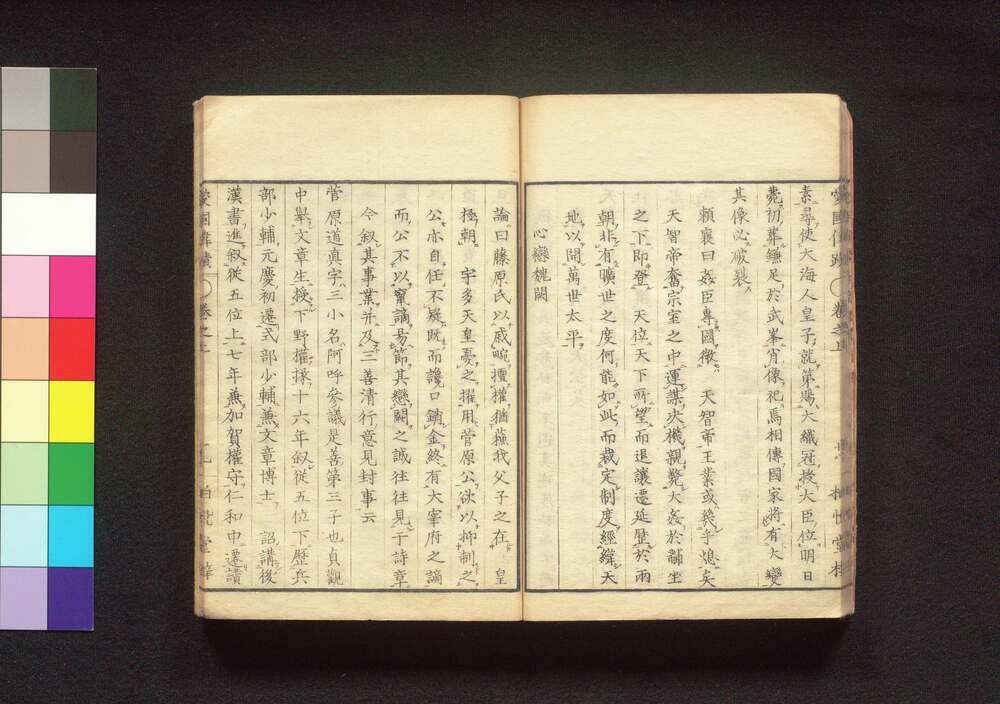 素尋使大海人皇子就第賜大織冠授大臣位明日
薨初葬鎌足於武峯肖像祀焉相傳國家將有大變
其像必破裂
頼襄曰姦臣專國微　天智帝王業或幾乎熄矣
天智帝奮宗室之中運謀決機親斃大姦於黼坐
之下即登　天位天下所望而退讓遷延歴於兩
朝非有曠世之度何能如此而裁定制度經緯天
地以開萬世太平
心戀魏闕
論曰藤原氏以戚畹擅權猶蘓我父子之在　皇
極朝　宇多天皇憂之擢用菅原公欲以抑制之
公亦自任不疑既而讒口鑠金終有大宰府之謫
而公不以竄謫易節其戀闕之誠往往見于詩章
今叙其事業并及三善清行意見封事云
菅原道眞字三小名阿呼參議是善第三子也貞觀
中舉文章生授下野權掾十六年叙從五位下歴兵
部少輔元慶初遷式部少輔兼文章博士　詔講後
漢書進叙從五位上七年兼加賀權守仁和中遷讃
卷之上